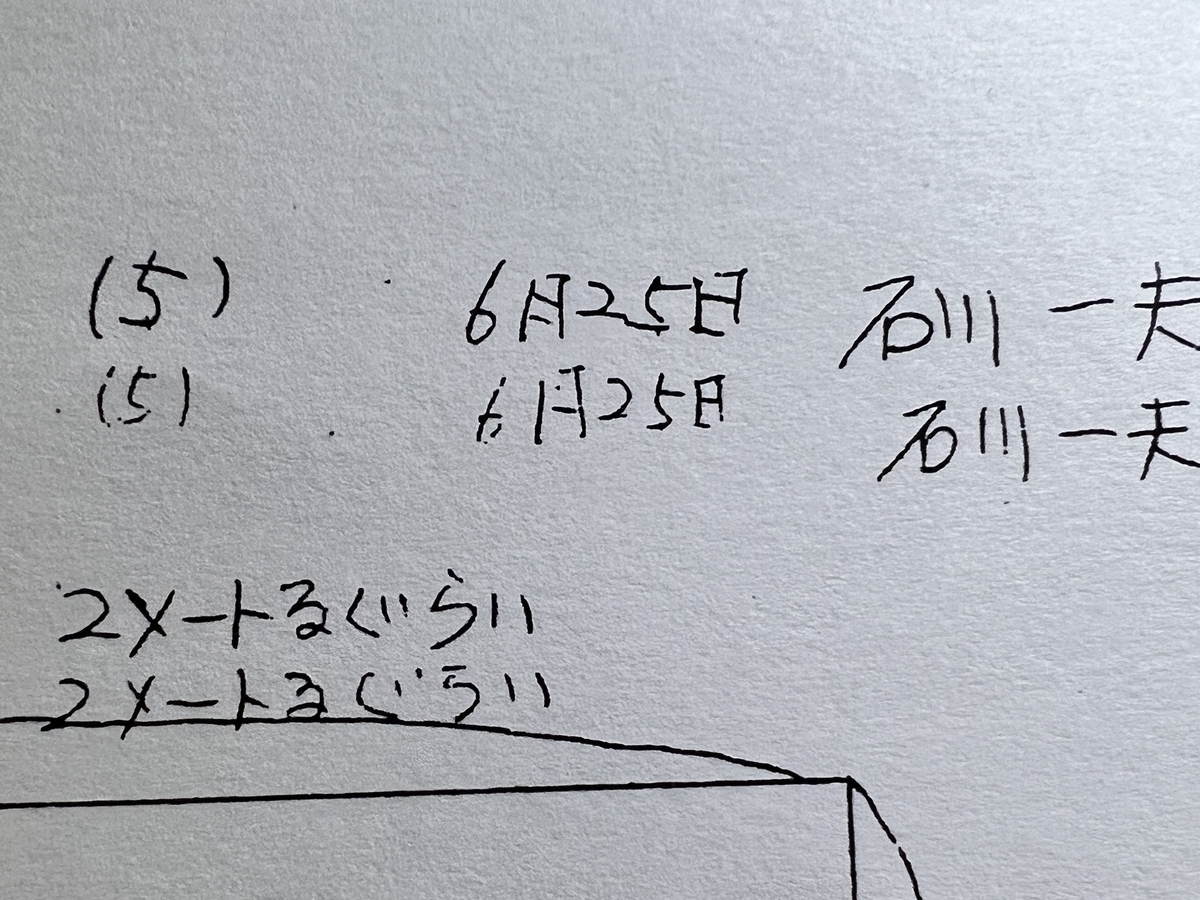 (5) 6月25日 石川一夫
(5) 6月25日 石川一夫
2メートるぐらい
2メートるぐらい